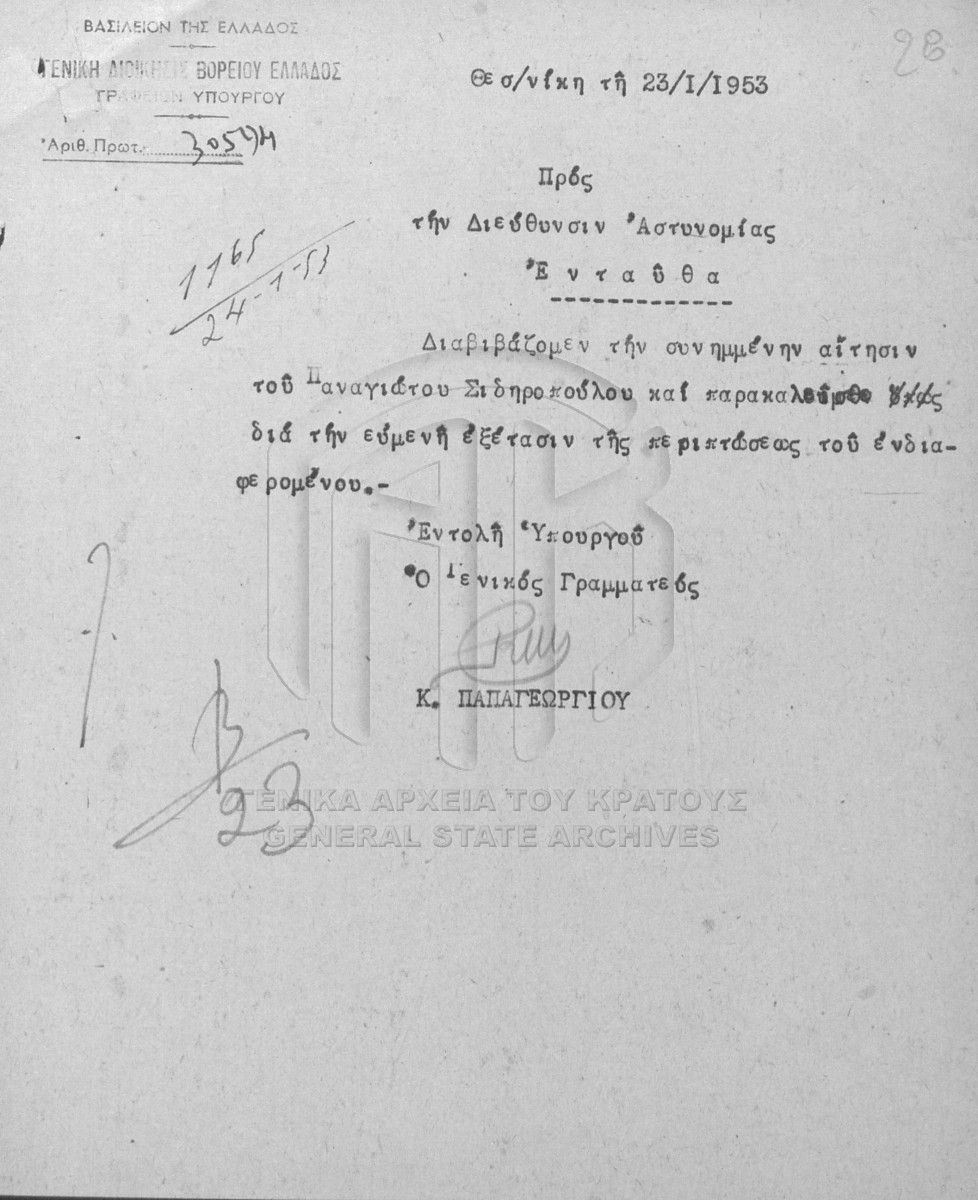 ΒΑΣΙΛΕΙΟΝ ΤΗΣ ΕΛΛΑΔΟΣ
ΓΕΝΙΚΗ ΔΙΟΙΚΗΣΙΣ ΒΟΡΕΙΟΥ ΕΛΛΑΔΟΣ
ΓΡΑΦΕΙΟΝ ΥΠΟΥΡΓΟΥ
Ἀριθ. Πρωτ.
28
Θεσ/νίκη τῆ 23/Ι/1953
Πρός
τήν Διεύθυνσιν Ἀστυνομίας
Ἐνταῦθα
1165
24-1-53
Διαβιβάζομεν τήν συνημμένην αἴτησιν
τοῦ Παναγιώτου Σιδηροπούλου καί
διά τήν εὐμενῆ ἐξέτασιν τῆς περιπτώσεως τοῦ ἐνδια-
φερομένου.-
Ἐντολῆ Ὑπουργοῦ
Ὁ Γενικός Γραμματεύς
Κ. ΠΑΠΑΓΕΩΡΓΙΟΥ
23
ΓΕΝΙΚΑ ΑΡΧΕΙΑ ΤΟΥ ΚΡΑΤΟΥΣ
GENERAL STATE ARCHIVES